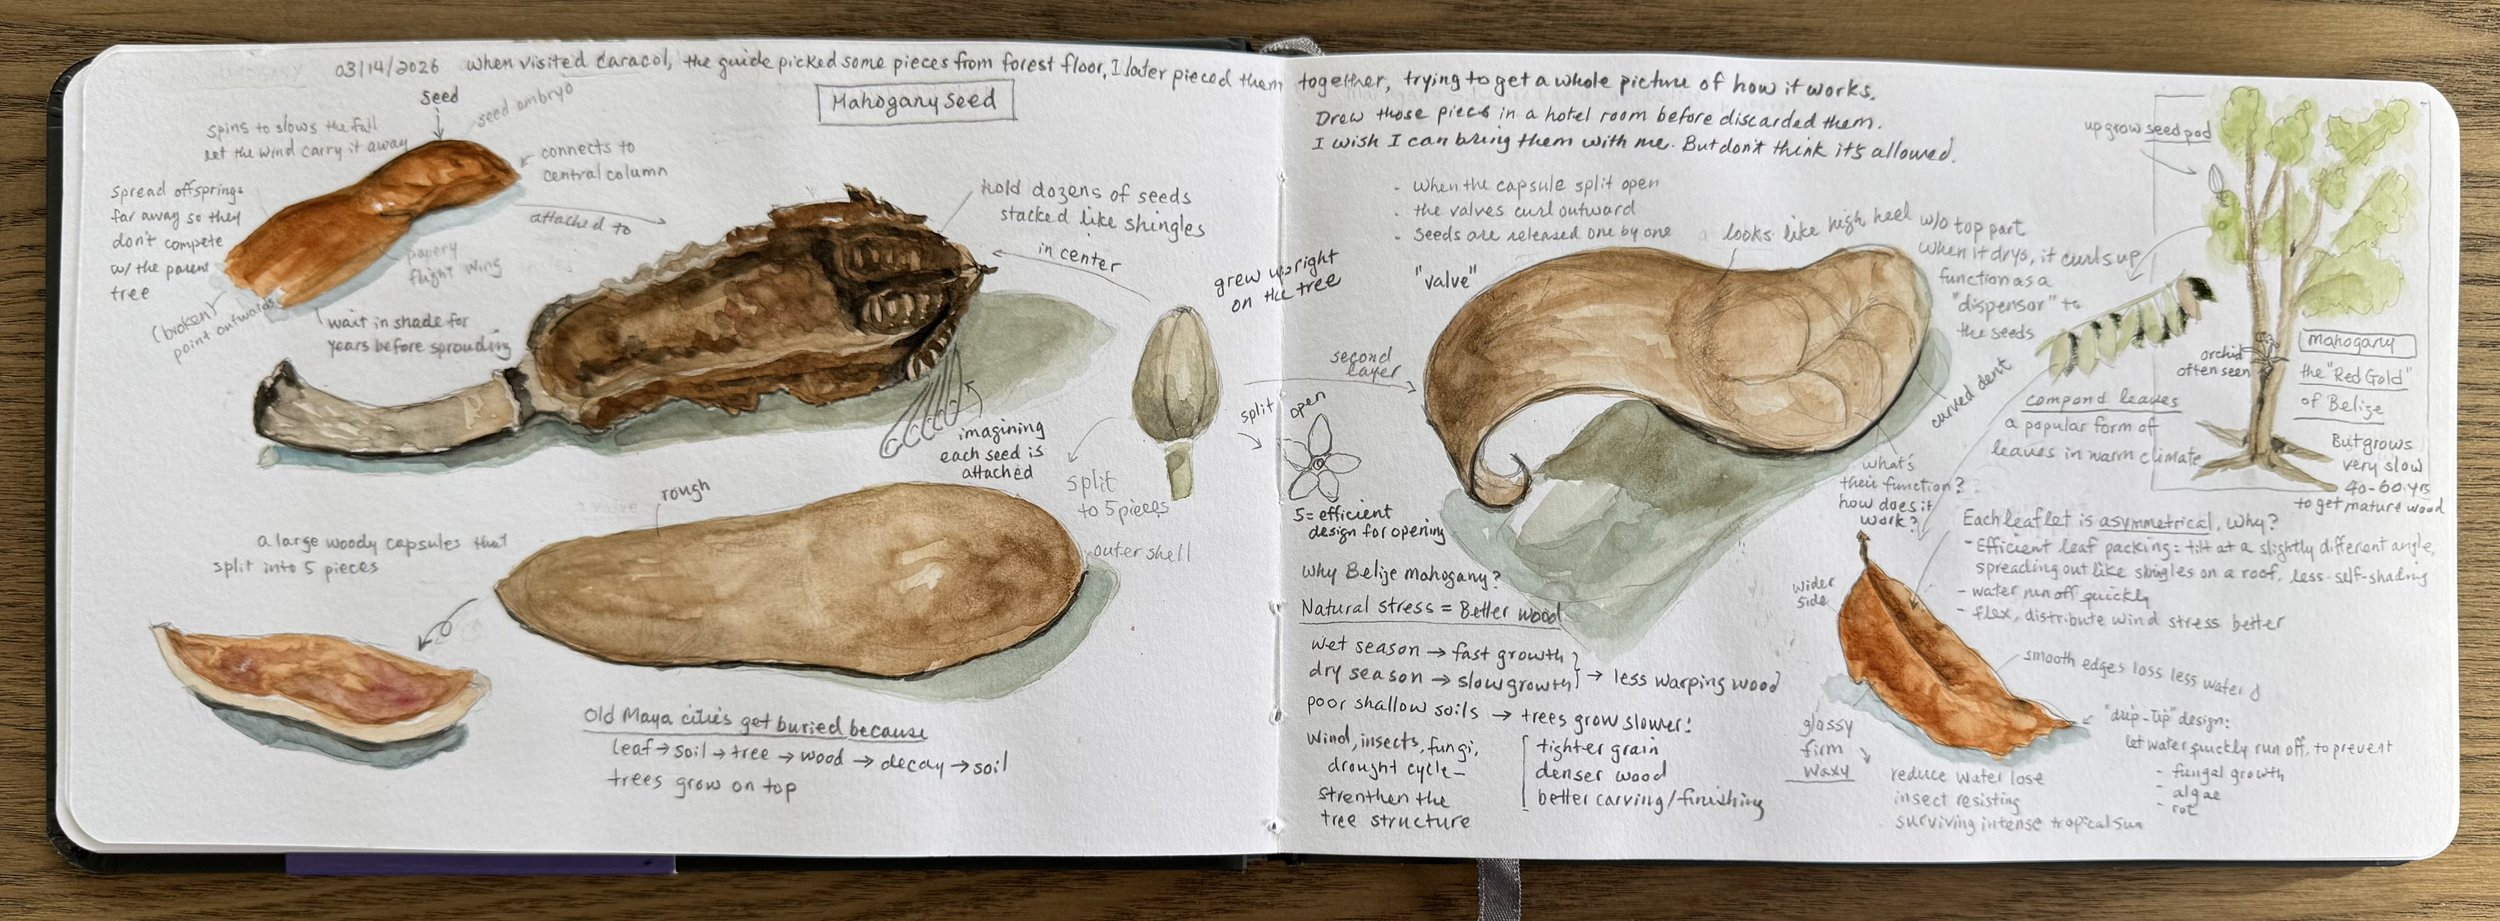 03/14/2026 When visited Caracol, the guide picked some pieces from forest floor, I later pieced them together, trying to get a whole picture of how it works.
Drew those pieces in a hotel room before discarded them.
I wish I can bring them with me. But don't think it's allowed.
Mahogany seed
seed
seed embryo
spins to slows the fall
let the wind carry it away
connects to
central column
spread offsprings
far away so they
don't compete
w/ the parent
tree
papery
flight wing
(broken)
point outwards
wait in shade for
years before sprouding
attached to
hold dozens of seeds
stacked like shingles
in center
imagining
each seed is
attached
grew upright
on the tree
split
to 5 pieces
rough
outer shell
a large woody capsules that
split into 5 pieces
Old Maya cities get buried because
leaf → soil → tree → wood → decay → soil
trees grow on top
- When the capsule split open
- the valves curl outward
- seeds are released one by one
"valve"
looks like high heel w/o top part
when it drys, it curls up
function as a
"dispensor" to
the seeds
second
layer
split open
5 = efficient
design for opening
curved dent
what's
their function?
how does it
work?
Why Belize mahogany?
Natural stress = Better wood
wet season → fast growth
dry season → slow growth
→ less warping wood
poor shallow soils → trees grow slower:
tighter grain
denser wood
better carving/finishing
Wind, insects, fungi,
drought cycle –
strenthen the
tree structure
up grow seed pod
orchid
often seen
mahogany
the "Red Gold"
of Belize
But grows
very slow
40-60 yrs
to get mature wood
compond leaves
a popular form of
leaves in warm climate
Each leaflet is asymmetrical, why?
- Efficient leaf packing: tilt at a slightly different angle,
spreading out like shingles on a roof, less self-shading
- water run off quickly
- flex, distribute wind stress better
wider
side
smooth edges loss less water
"drip-tip" design:
let water quickly run off, to prevent
- fungal growth
- algae
- rot
glossy
firm
waxy
reduce water lose
insect resisting
surviving intense tropical sun